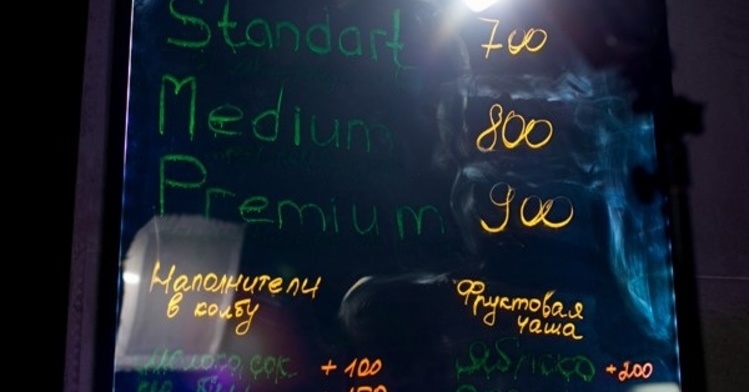 Standart 700
Medium 800
Premium 900
Наполнители
в колбу
Фруктовая
чаша
+100
Яблоко +200